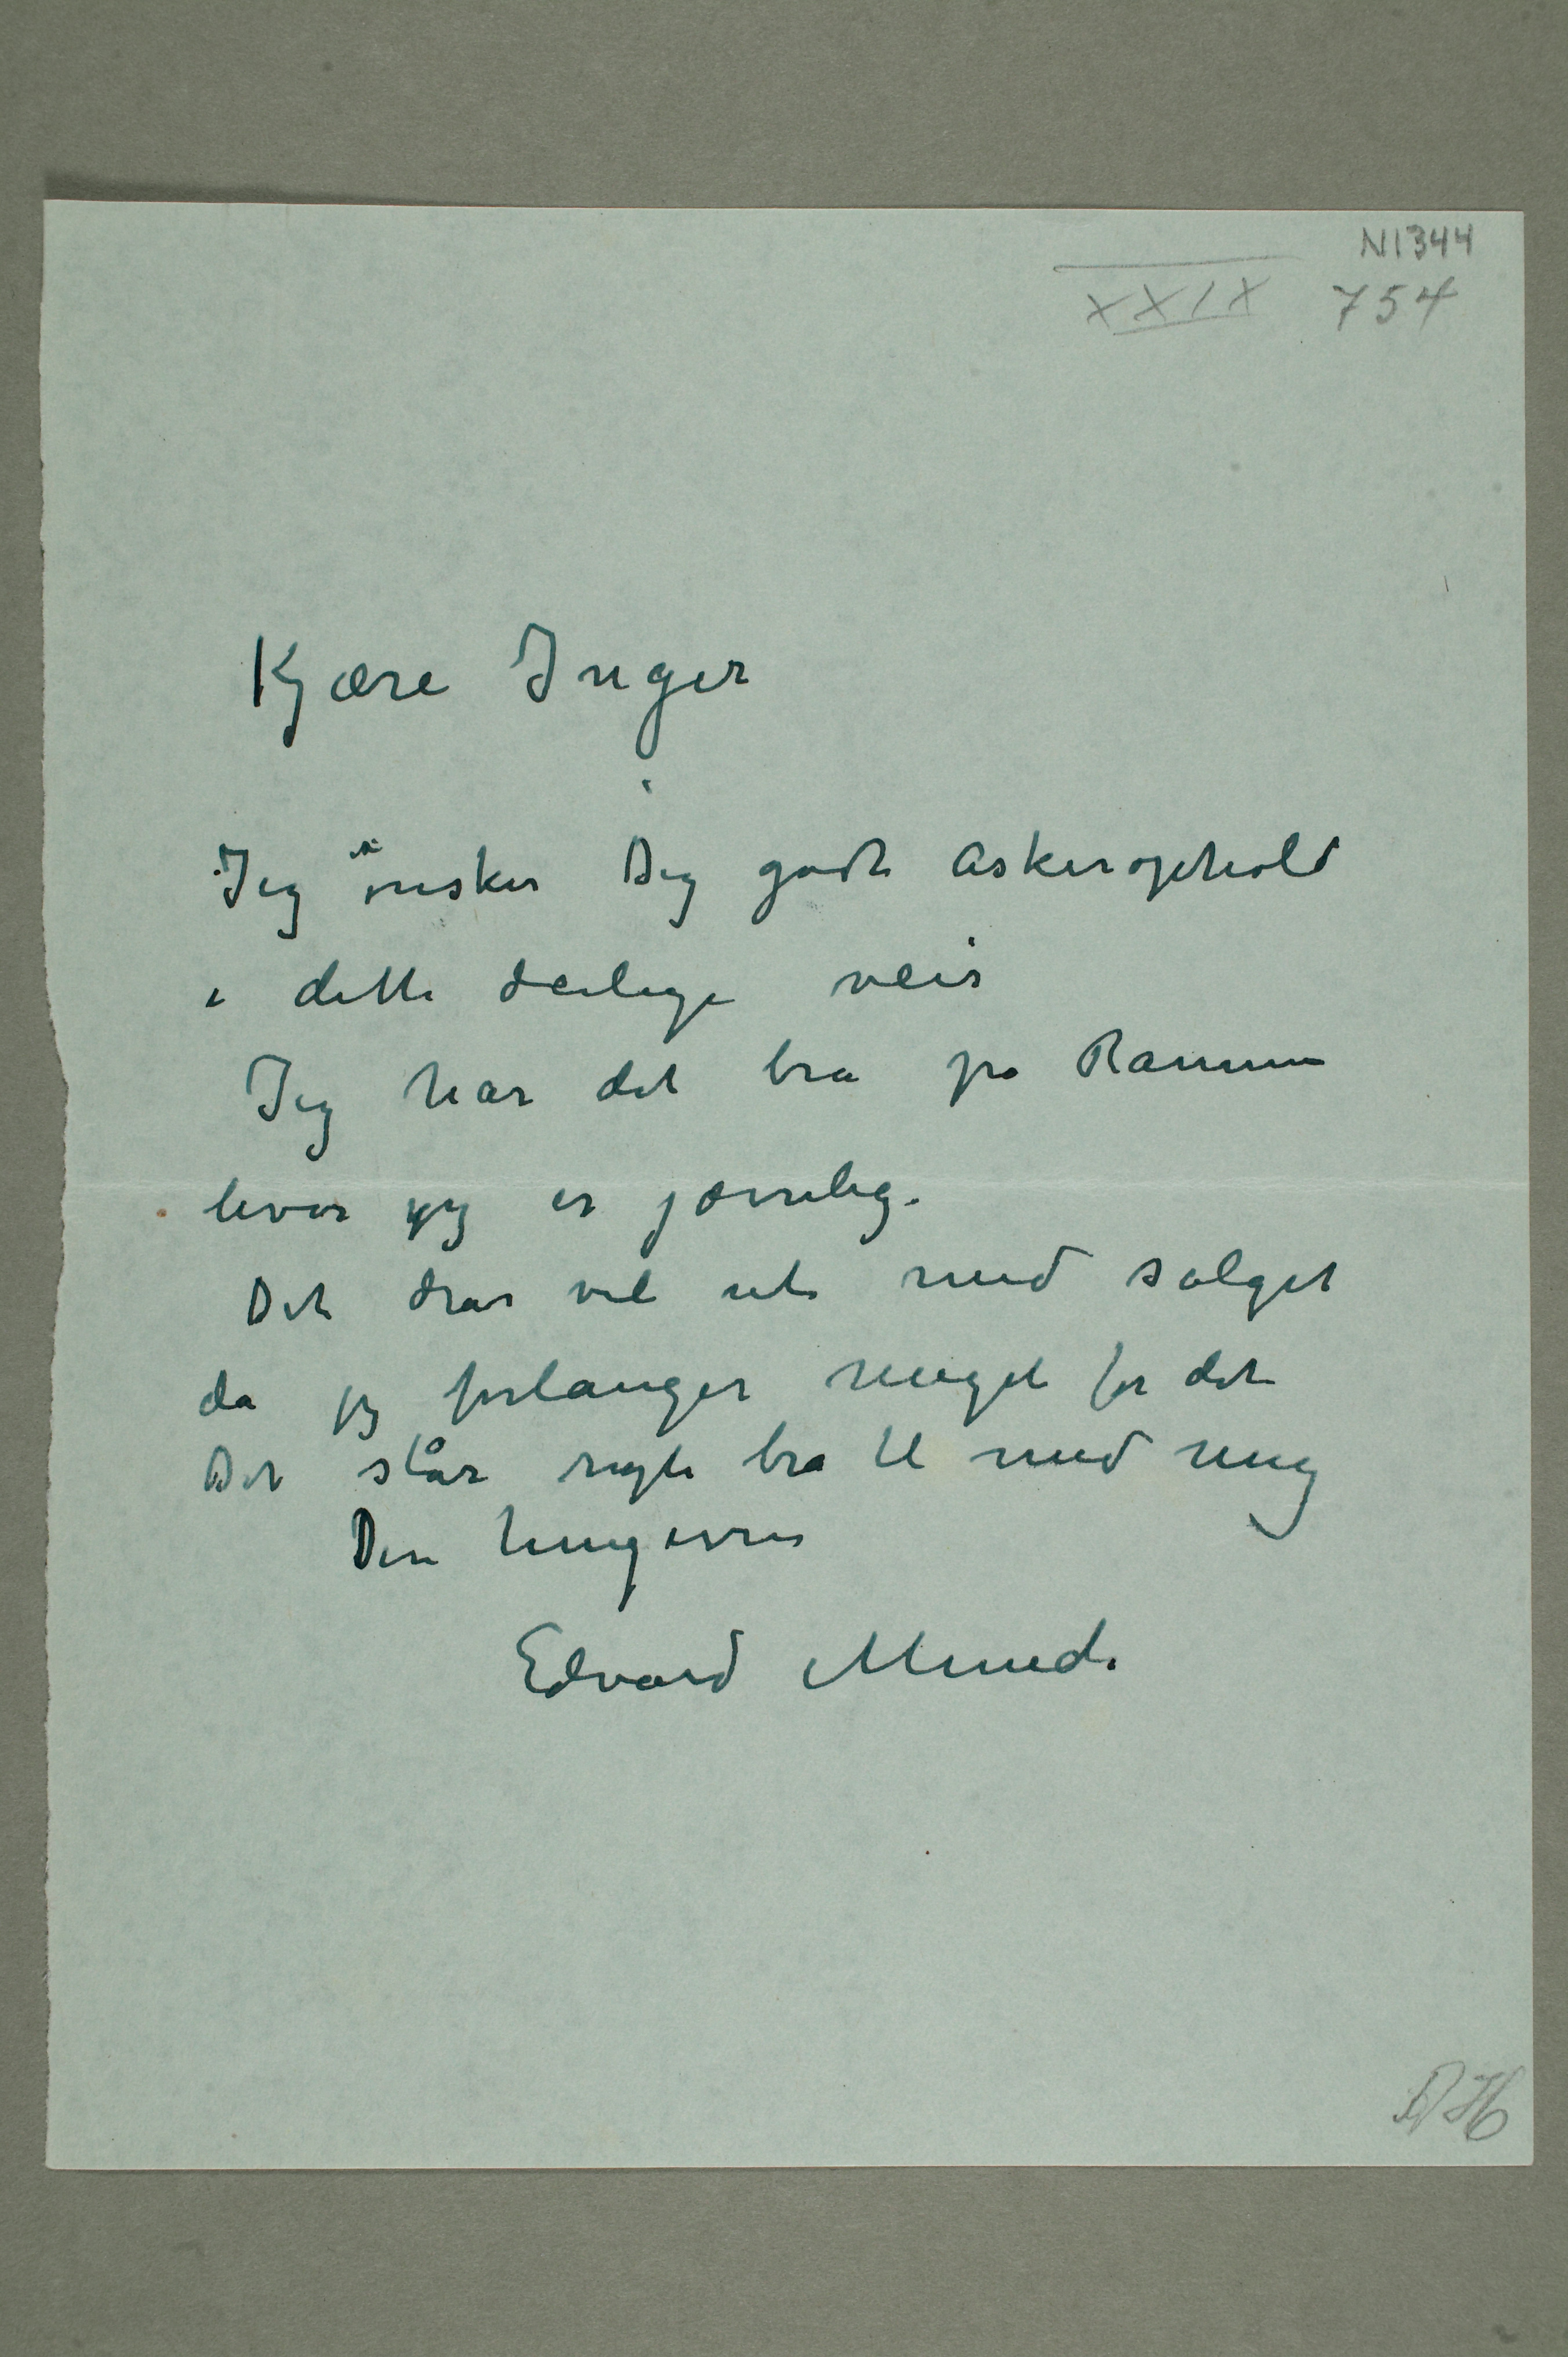 N1344
XXIX 754
Kjære Inger
Jeg ønsker Dig godt Askerophold
i dette deilige veir
Jeg har det bra på Ramme
hvor jeg er jævnlig.
Det drar vel ut med salget
da jeg forlanger meget for det
Det står rigti bra til med mig
Din hengivne
Edvard Munch